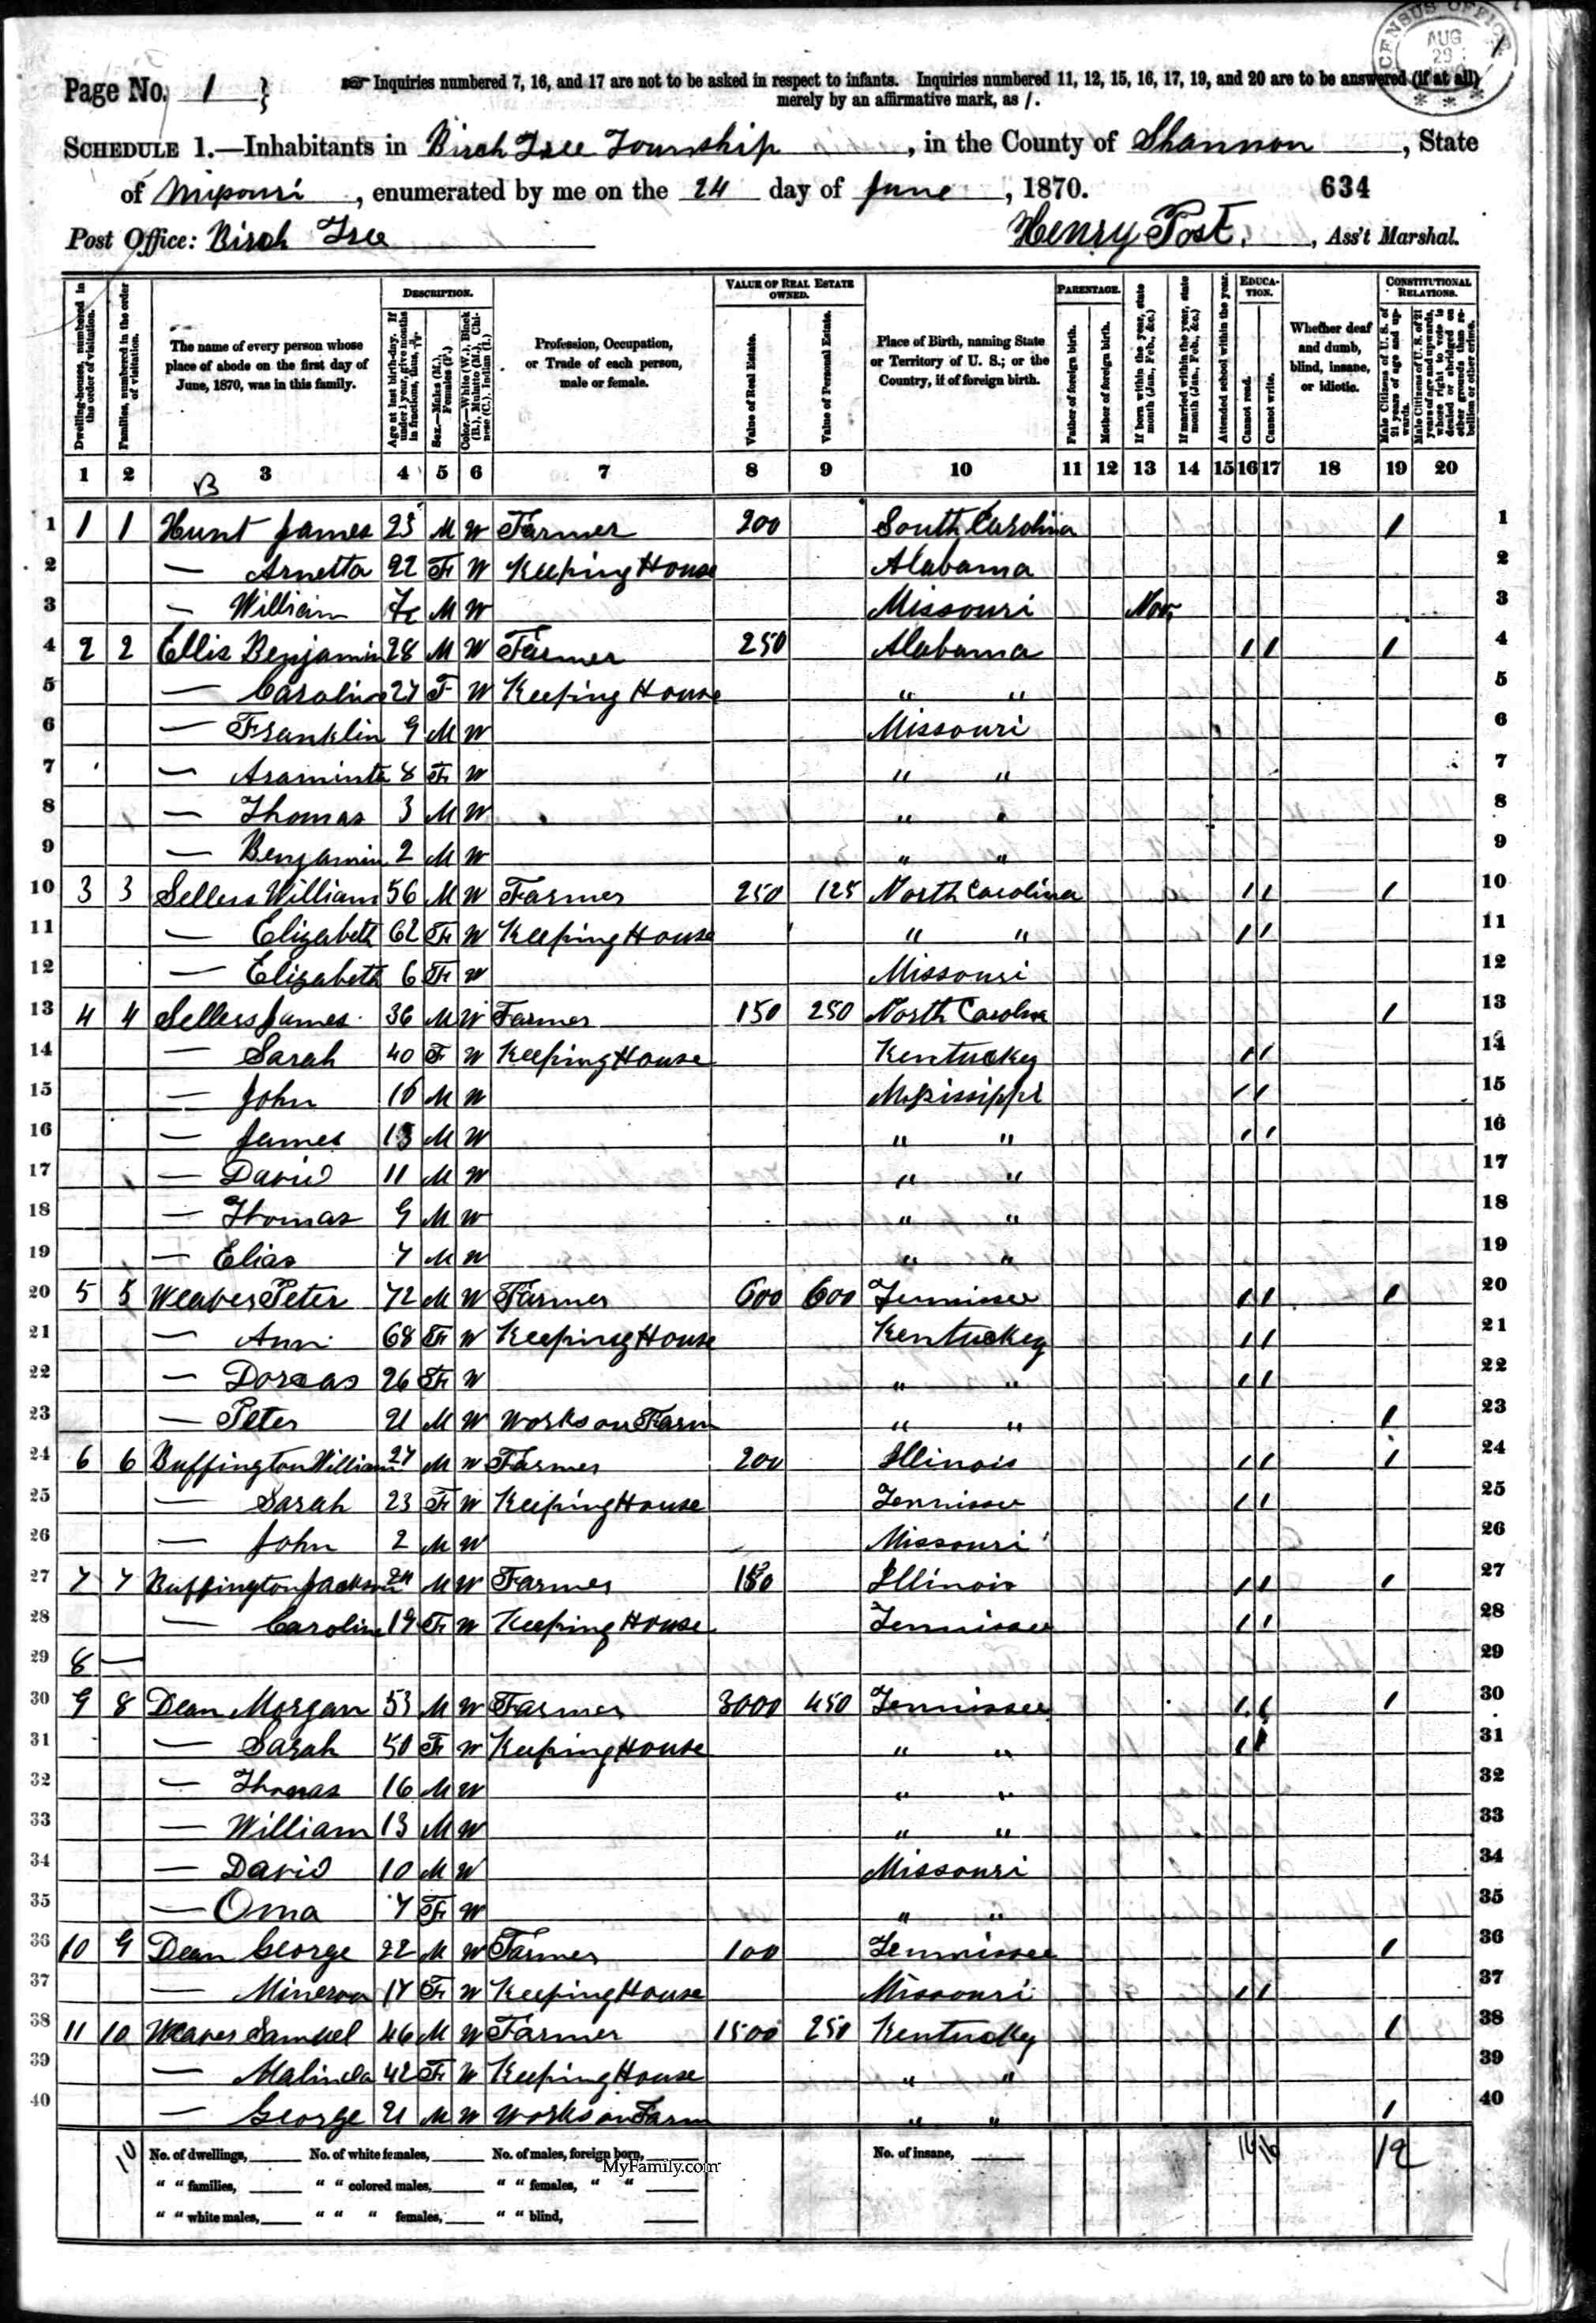 CENSUS OFFICE AUG 29
Page No. 1
Inquiries numbered 7, 16, and 17 are not to be asked in respect to infants. Inquiries numbered 11, 12, 15, 16, 17, 19, and 20 are to be answered (if at all)
merely by an affirmative mark, as /.
SCHEDULE 1.—Inhabitants in Birch Tree Township, in the County of Shannon, State
of Missouri, enumerated by me on the 24 day of June, 1870. 634
Post Office: Birch Tree Henry Post, Ass't Marshal.
Dwelling-houses, numbered in the order of visitation.
Families, numbered in the order of visitation.
The name of every person whose place of abode on the first day of June, 1870, was in this family.
DESCRIPTION.
Age at last birth-day. If under 1 year, give months in fractions, thus, 3/12
Sex.—Males (M.), Females (F.)
Color.—White (W.), Black (B.), Mulatto (M.), Chinese (C.), Indian (I.)
Profession, Occupation, or Trade of each person, male or female.
VALUE OF REAL ESTATE OWNED.
Value of Real Estate.
Value of Personal Estate.
Place of Birth, naming State or Territory of U. S.; or the Country, if of foreign birth.
PARENTAGE.
Father of foreign birth.
Mother of foreign birth.
If born within the year, state month (Jan., Feb., &c.)
If married within the year, state month (Jan., Feb., &c.)
Attended school within the year.
EDUCATION.
Cannot read.
Cannot write.
Whether deaf and dumb, blind, insane, or idiotic.
CONSTITUTIONAL RELATIONS.
Male Citizens of U. S. of 21 years of age and upwards.
Male Citizens of U. S. of 21 years of age and upwards, whose right to vote is denied or abridged on other grounds than rebellion or other crime.
1 2 3 4 5 6 7 8 9 10 11 12 13 14 15 16 17 18 19 20
1 1 1 Hunt James 25 M W Farmer 200 South Carolina / 1
2 — Arnetta 22 F W Keeping House Alabama 2
3 — William M W Missouri Nov 3
4 2 2 Ellis Benjamin 28 M W Farmer 250 Alabama / / / 4
5 — Caroline 27 F W Keeping House " " 5
6 — Franklin 9 M W Missouri 6
7 — Araminta 8 F W " " 7
8 — Thomas 3 M W " " 8
9 — Benjamin 2 M W " " 9
10 3 3 Sellers William 56 M W Farmer 250 125 North Carolina / / / 10
11 — Elizabeth 62 F W Keeping House " " / / 11
12 — Elizabeth 6 F W Missouri 12
13 4 4 Sellers James 36 M W Farmer 150 250 North Carolina / 13
14 — Sarah 40 F W Keeping House Kentuckey / / 14
15 — John M W Mississippi / / 15
16 — James 13 M W " " / / 16
17 — David 11 M W " " 17
18 — Thomas 9 M W " " 18
19 — Elias 7 M W " " 19
20 5 5 Weaver Peter 72 M W Farmer 600 600 Tennissee / / / 20
21 — Ann 68 F W Keeping House Kentuckey / / 21
22 — Dorcas 26 F W " " / / 22
23 — Peter 21 M W Works on Farm " " / 23
24 6 6 Buffington William 27 M W Farmer 200 Illinois / / / 24
25 — Sarah 23 F W Keeping House Tennissee / / 25
26 — John 2 M W Missouri 26
27 7 7 Buffington Jackson 24 M W Farmer Illinois / / / 27
28 — Caroline 19 F W Keeping House Tennissee / / 28
29 8 — 29
30 9 8 Dean Morgan 53 M W Farmer 3000 450 Tennissee / / / 30
31 — Sarah 50 F W Keeping House " " / / 31
32 — Thomas 16 M W " " 32
33 — William 13 M W " " 33
34 — David 10 M W Missouri 34
35 — Oma 7 F W " " 35
36 10 9 Dean George 22 M W Farmer 100 Tennissee / 36
37 — Minerva 17 F W Keeping House Missouri / / 37
38 11 10 Weaver Samuel 46 M W Farmer 1500 250 Kentuckey / 38
39 — Malinda 42 F W Keeping House " " 39
40 — George 21 M W Works on Farm " " / 40
10 No. of dwellings, No. of white females, No. of males, foreign born, No. of insane, 16 16 12
MyFamily.com
" " families, " " colored males, " " females, " "
" " white males, " " " females, " " blind,